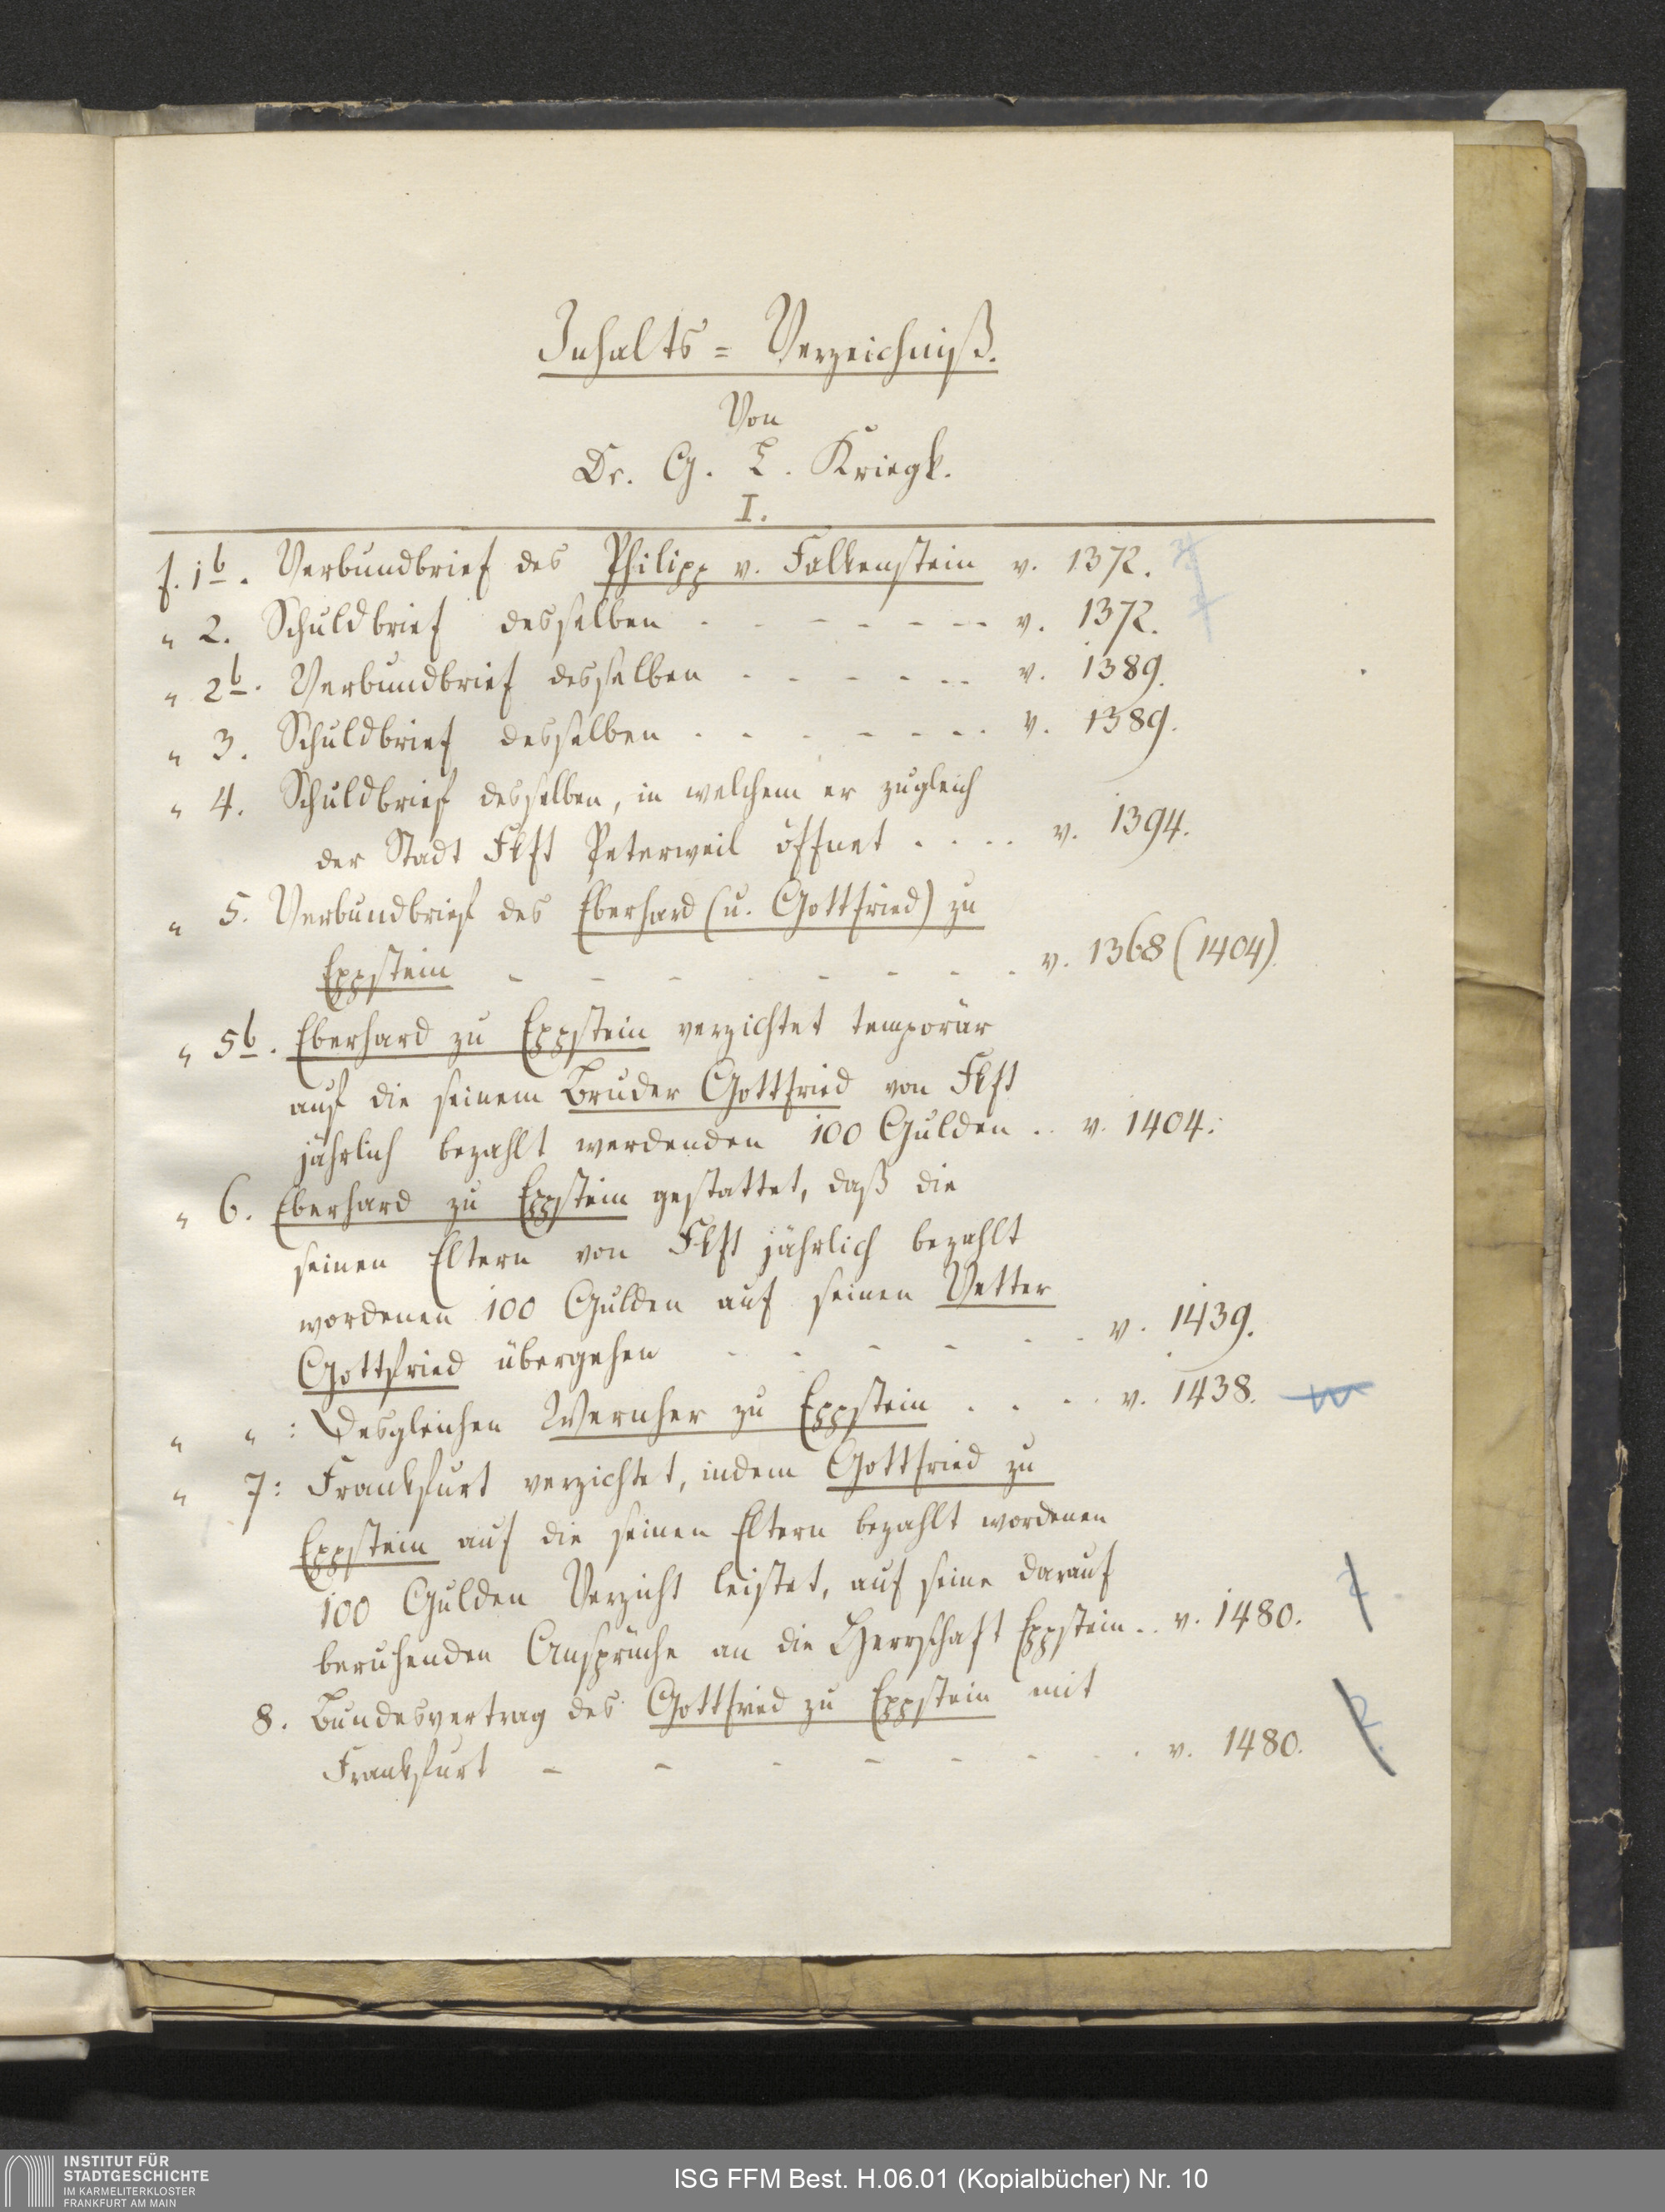 Inhalts = Verzeichniß.
Von
Dr. G. L. Kriegk.
I.
f. 1b. Verbundbrief des Philipp v. Falkenstein v. 1372.
" 2. Schuldbrief desselben - - - - - - - v. 1372.
" 2b. Verbundbrief desselben - - - - - - v. 1389.
" 3. Schuldbrief desselben - - - - - - - v. 1389.
" 4. Schuldbrief desselben, in welchem er zugleich
der Stadt Fkft Peterweil öffnet . . . . v. 1394.
" 5. Verbundbrief des Eberhard (u. Gottfried) zu
Eppstein - - - - - - - - v. 1368 (1404).
" 5b. Eberhard zu Eppstein verzichtet temporär
auf die seinem Bruder Gottfried von Fkft
jährlich bezahlt werdenden 100 Gulden .. v. 1404.
" 6. Eberhard zu Eppstein gestattet, daß die
seinen Eltern von Fkft jährlich bezahlt
wordenen 100 Gulden auf seinen Vetter
Gottfried übergehen - - - - - - v. 1439.
" " : Desgleichen Wernher zu Eppstein . . . . v. 1438.
" 7: Frankfurt verzichtet, indem Gottfried zu
Eppstein auf die seinen Eltern bezahlt wordenen
100 Gulden Verzicht leistet, auf seine darauf
beruhenden Ansprüche an die Herrschaft Eppstein .. v. 1480.
8. Bundesvertrag des Gottfried zu Eppstein mit
Frankfurt - - - - - - - - v. 1480.
INSTITUT FÜR
STADTGESCHICHTE
IM KARMELITERKLOSTER
FRANKFURT AM MAIN
ISG FFM Best. H.06.01 (Kopialbücher) Nr. 10